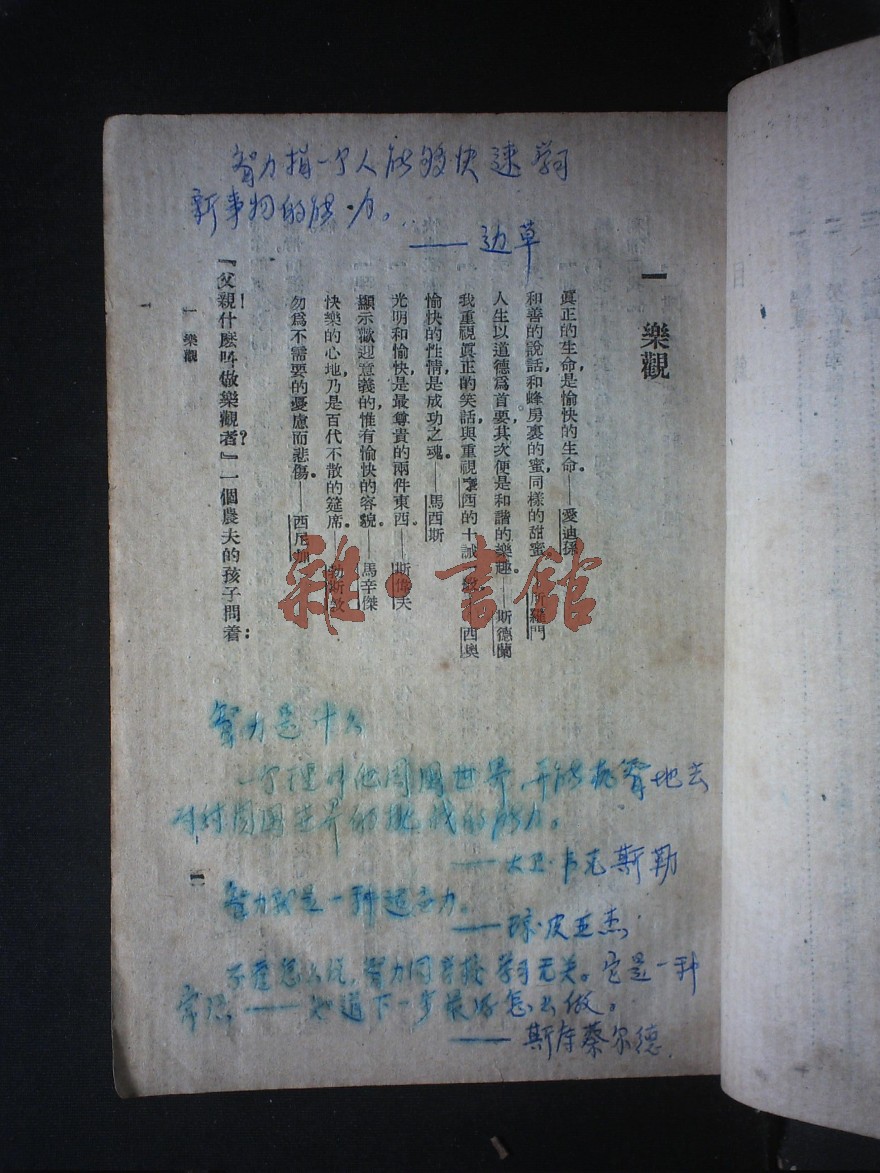 智力指一个人能够快速学习
新事物的能力。
——边草
一 樂觀
眞正的生命,是愉快的生命。——愛迪孫
和善的說話,和蜂房裏的蜜,同樣的甜蜜。——所羅門
人生以道德爲首要,其次便是和諧的樂趣。——斯德蘭
我重視眞正的笑話,與重視的十誡
愉快的性情是成功之魂。——馬西斯
光明和愉快,是最尊貴的兩件東西。——斯偉夫
顯示歡迎意義的,惟有愉快的容貌。——馬辛傑
快樂的心地,乃是百代不散的筵席。——勃斯敦
勿爲不需要的憂慮而悲傷。——西尼加
『父親!什麼呌做樂觀者?』一個農夫的孩子問着:
一 樂觀
一
智力是什么
一个理解他周围世界、并能机智地去
对付周围世界的挑战的能力。
——大卫·韦克斯勒
智力就是一种适应力。
——琼·皮亚杰
不管怎么说,智力同学校学习无关。它是一种
常识——知道下一步最好怎么做。
——斯侉蔡尔德
雜·書館